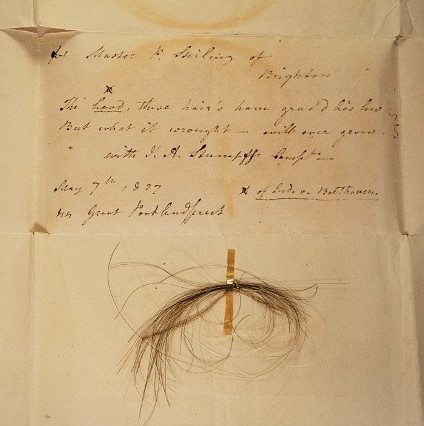 for Master P. Stirling of
Brighton
x
The head, these hair's have grac'd lies low
But what it wrought — will ever grow.
with J. A. Stumpff
May 7th 1827
x of Lud. v. Beethoven.
44 Great Portland Street